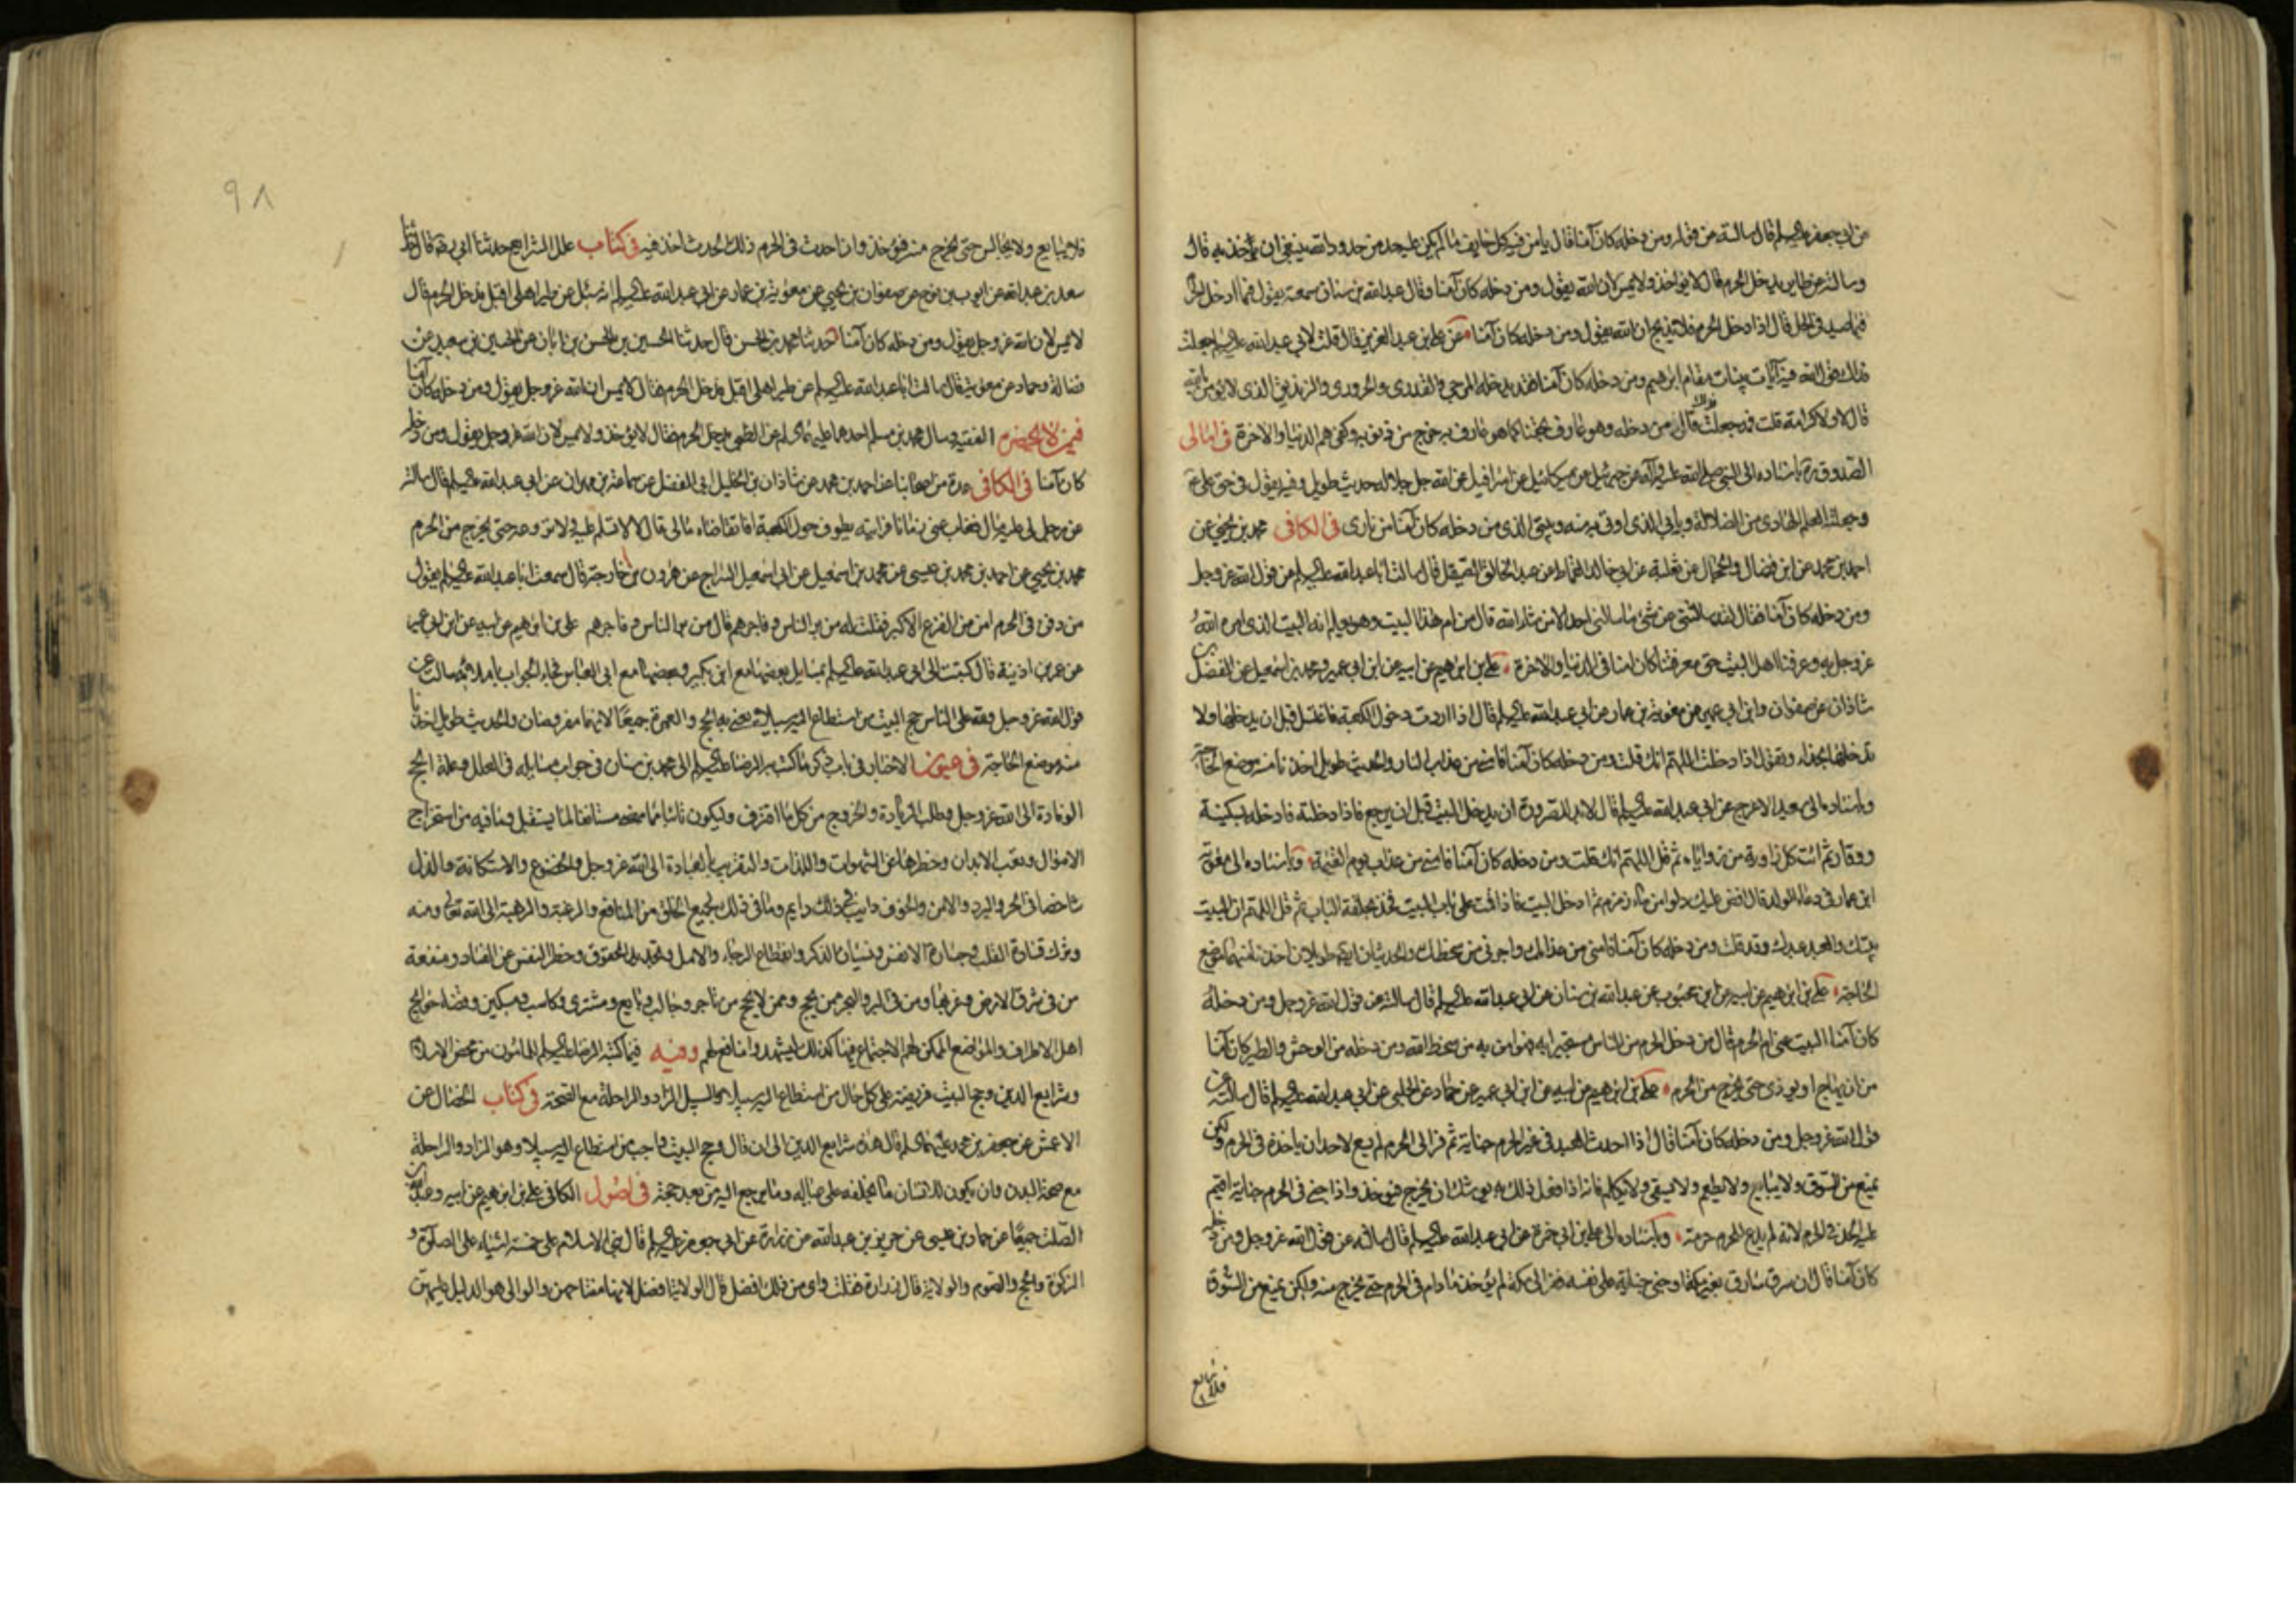 عن ابي جعفر عليه السلام قال سالته عن قوله ومن دخله كان آمنا قال يأمن فيه كل خايف ما لم يكن عليه حد من حدود الله ينبغي ان يؤخذ به قال
وسالته عن طاير يدخل الحرم قال لا يؤخذ ولا يمس لان الله يقول ومن دخله كان آمنا وقال عبد الله بن سنان سمعته يقول فيما ادخل الحرم
مما صيد في الحل قال اذا دخل الحرم فلا يذبح ان الله يقول ومن دخله كان آمنا عن علي بن عبد العزيز قال قلت لابي عبد الله عليه السلم جعلت
فداك قول الله فيه آيات بينات مقام ابرهيم ومن دخله كان آمنا فقد يدخله المرجى والقدرى والحرورى والزنديق الذى لا يؤمن بالله
قال لا ولا كرامة قلت فمه جعلت فداك قال من دخله وهو عارف بحقنا كما هو عارف به خرج من ذنوبه وكفى هم الدنيا والاخرة في امالى
الصدوق ره باسناده الى النبي صلى الله عليه وآله عن جبرئيل عن ميكائيل عن اسرافيل عن الله جل جلاله حديث طويل وفيه يقول في حق على
وجعلته العلم الهادى من الضلالة وبابى الذى اوتى منه وبيتى الذى من دخله كان آمنا من نارى في الكافى محمد بن يحيى عن
احمد بن محمد عن ابن فضال والحجال عن ثعلبة عن ابي خالد القماط عن عبد الخالق الصيقل قال سالت ابا عبد الله عليه السلم عن قول الله عز وجل
ومن دخله كان آمنا فقال لقد سالتنى عن شئ ما سالنى احد الا من شاء الله قال من ام هذا البيت وهو يعلم انه البيت الذى امره الله
عز وجل به وعرفنا اهل البيت حق معرفتنا كان امنا في الدنيا والاخرة على بن ابرهيم عن ابيه عن ابن ابي عمير ومحمد بن اسمعيل عن الفضل بن
شاذان عن صفوان وابن ابي عمير عن معوية بن عمار عن ابي عبد الله عليه السلم قال اذا اردت دخول الكعبة فاغتسل قبل ان يدخلها ولا
تدخلها بحذاء وتقول اذا دخلت اللهم انك قلت ومن دخله كان آمنا فامني من عذاب النار والحديث طويل اخذنا منه موضع الحاجة
وباسناده الى سعيد الاعرج عن ابي عبد الله عليه السلم قال لا بد للصرورة ان يدخل البيت قبل ان يرجع فاذا دخلته فادخله بسكينة
ووقار ثم ائت كل زاوية من زواياه ثم قل اللهم انك قلت ومن دخله كان آمنا فامني من عذاب يوم القيمة وباسناده الى معوية
ابن عمار في دعاء الولد قال افض عليك دلوا من ماء زمزم ثم ادخل البيت فاذا قمت على باب البيت فخذ بحلقة الباب ثم قل اللهم ان البيت
بيتك والعبد عبدك وقد قلت ومن دخله كان آمنا فامني من عذابك واجرني من سخطك والحديثان طويلان اخذنا منهما موضع
الحاجة على بن ابرهيم عن ابيه عن ابن محبوب عن عبد الله بن سنان عن ابي عبد الله عليه السلم قال سالته عن قول الله عز وجل ومن دخله
كان آمنا البيت عنى ام الحرم قال من دخل الحرم من الناس مستجيرا به فهو امن به من سخط الله ومن دخله من الوحش والطير كان آمنا
من ان يهاج او يوذى حتى يخرج من الحرم على بن ابرهيم عن ابيه عن ابن ابي عمير عن حماد عن الحلبى عن ابي عبد الله عليه السلم قال سالته عن
قول الله عز وجل ومن دخله كان آمنا قال اذا احدث العبد في غير الحرم جناية ثم فر الى الحرم لم يسع لاحد ان ياخذه في الحرم ولكن
يمنع من السوق ولا يبايع ولا يطعم ولا يسقى ولا يكلم فانه اذا فعل ذلك به يوشك ان يخرج فيؤخذ واذا جنى في الحرم جناية اقيم
عليه الحد في الحرم لانه لم يدع للحرم حرمته وباسناده الى على بن ابي حمزة عن ابي عبد الله عليه السلم قال سالته عن قول الله عز وجل ومن دخله
كان آمنا قال ان سرق سارق بغير مكة او جنى جناية على نفسه ففر الى مكة لم يؤخذ ما دام في الحرم حتى يخرج منه ولكن يمنع من السوق
فلا يبايع
٩٨
فلا يبايع ولا يجالس حتى يخرج منه فيؤخذ وان احدث في الحرم ذلك الحدث اخذ فيه في كتاب علل الشرايع حدثنا ابي ره قال حدثنا
سعد بن عبد الله عن ايوب بن نوح عن صفوان بن يحيى عن معوية بن عمار عن ابي عبد الله عليه السلم انه سئل عن طير اهلى اقبل فدخل الحرم قال
لا يمس لان الله عز وجل يقول ومن دخله كان آمنا حدثنا محمد بن الحسن قال حدثنا الحسين بن الحسن بن ابان عن الحسين بن سعيد عن
فضالة وحماد عن معوية قال سالت ابا عبد الله عليه السلم عن طير اهلى اقبل فدخل الحرم فقال لا يمس ان الله عز وجل يقول ومن دخله كان آمنا
فيمن لا يحضره الفقيه وسال محمد بن مسلم احدهما عليهما السلم عن الظبى يدخل الحرم فقال لا يؤخذ ولا يمس لان الله عز وجل يقول ومن دخله
كان آمنا في الكافى عدة من اصحابنا عن احمد بن محمد عن شاذان بن الخليل ابي الفضل عن سماعة بن مهران عن ابي عبد الله عليه السلم قال سالته
عن رجل لى عليه مال فغاب عنى زمانا فرايته يطوف حول الكعبة افاتقاضاه مالى قال لا لا تسلم عليه ولا تروعه حتى يخرج من الحرم
محمد بن يحيى عن احمد بن محمد بن عيسى عن محمد بن اسمعيل عن ابي اسمعيل السراج عن هرون بن خارجة قال سمعت ابا عبد الله عليه السلم يقول
من دفن في الحرم امن من الفزع الاكبر فقلت له من بر الناس وفاجرهم قال من بر الناس وفاجرهم على بن ابرهيم عن ابيه عن ابن ابي عمير
عن عمر بن اذينة قال كتبت الى ابي عبد الله عليه السلم بمسايل بعضها مع ابن بكير وبعضها مع ابي العباس فجاء الجواب باملائه سالت عن
قول الله عز وجل ولله على الناس حج البيت من استطاع اليه سبيلا يعنى به الحج والعمرة جميعا لانهما مفروضان والحديث طويل اخذنا
منه موضع الحاجة في عيون الاخبار في باب ذكر ما كتب به الرضا عليه السلم الى محمد بن سنان في جواب مسايله في العلل وعلة الحج
الوفادة الى الله عز وجل وطلب الزيادة والخروج من كل ما اقترف وليكون تائبا مما مضى مستانفا لما يستقبل وما فيه من استخراج
الاموال وتعب الابدان وحظرها عن الشهوات واللذات والتقرب بالعبادة الى الله عز وجل والخضوع والاستكانة والذل
شاخصا في الحر والبرد والامن والخوف دايب في ذلك دايم وما في ذلك لجميع الخلق من المنافع والرغبة والرهبة الى الله تعالى ومنه
وترك قساوة القلب وجسارة الانفس ونسيان الذكر وانقطاع الرجاء والامل وتجديد الحقوق وحظر النفس عن الفساد ومنفعة
من في شرق الارض وغربها ومن في البر والبحر ممن يحج وممن لا يحج من تاجر وجالب وبايع ومشترى وكاسب ومسكين وقضاء حوايج
اهل الاطراف والمواضع الممكن لهم الاجتماع فيها كذلك ليشهدوا منافع لهم وفيه فيما كتبه الرضا عليه السلم للمامون من محض الاسلام
وشرايع الدين وحج البيت فريضة على كل حال من استطاع اليه سبيلا والسبيل الزاد والراحلة مع الصحة في كتاب الخصال عن
الاعمش عن جعفر بن محمد عليهما السلم قال هذه شرايع الدين الى ان قال وحج البيت واجب من استطاع اليه سبيلا وهو الزاد والراحلة
مع صحة البدن وان يكون للانسان ما يخلفه على عياله وما يرجع اليه من بعد حجه في اصول الكافى على بن ابرهيم عن ابيه وعبد الله بن
الصلت جميعا عن حماد بن عيسى عن حريز بن عبد الله عن زرارة عن ابي جعفر عليه السلم قال بنى الاسلام على خمسة اشياء على الصلوة و
الزكوة والحج والصوم والولاية قال زرارة فقلت واى من ذلك افضل قال الولاية افضل لانها مفتاحهن والوالى هو الدليل عليهن